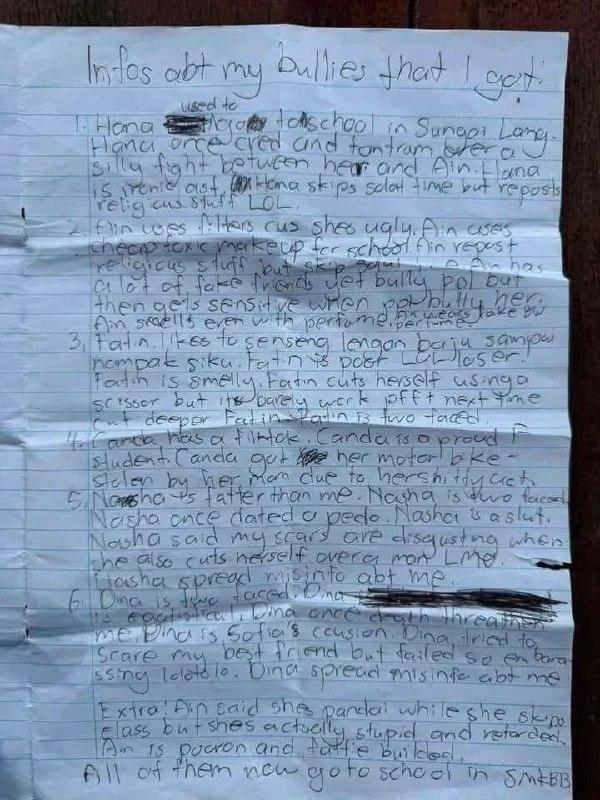 Infos abt my bullies that I got.
used to
1. Hana to school in Sungai Lang.
Hana once cried and tantrum over a
silly fight between her and Ain. Hana
is ironic asf, Hana skips solat time but reposts
religious stuff LOL.
2. Ain uses filters cus shes ugly. Ain uses
cheap toxic makeup for school. Ain repost
religious stuff but skip solat time. Ain has
a lot of fake friends yet bully ppl but
then gets sensitive when ppl bully her.
Ain smells even with perfume. Ain wears fake
perfume.
3. Fatin likes to senseng lengan baju sampai
nampak siku. Fatin is poor LOL loser.
Fatin is smelly. Fatin cuts herself using a
scissor but it barely work pfft next time
cut deeper Fatin. Fatin is two faced.
4. Canda has a tiktok. Canda is a proud F
student. Canda got her motor bike
stolen by her mom due to her shitty act.
5. Nasha is fatter than me. Nasha is two faced.
Nasha once dated a pedo. Nasha is a slut.
Nasha said my scars are disgusting when
she also cuts herself over a man LMO.
Nasha spread misinfo abt me.
6. Dina is two faced. Dina
is egotistical. Dina once death threathen
me. Dina is Sofia's ccusion. Dina tried to
scare my best friend but failed so embara-
ssing lolololo. Dina spread misinfo abt me
Extra! Ain said shes pandai while she skips
class but shes actually stupid and retarded.
Ain is and fattie builded.
All of them now go to school in SMKBB